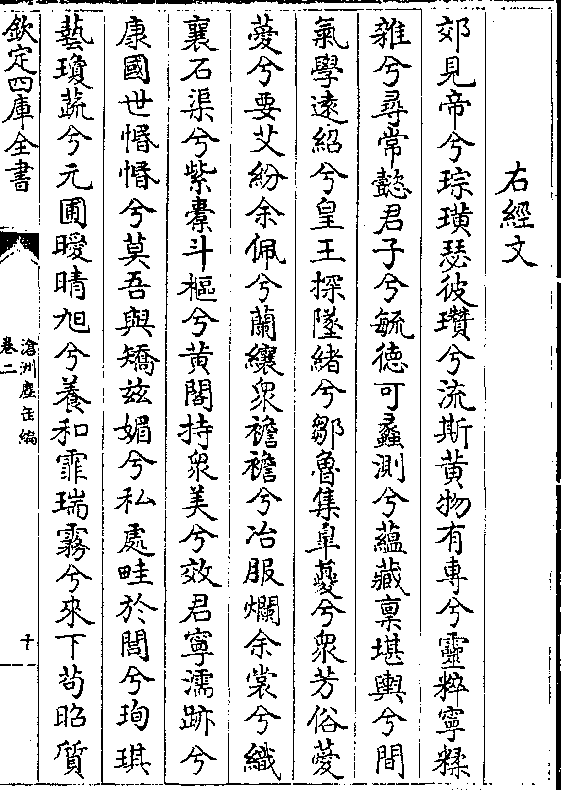 右經文
郊見帝兮琮璜瑟彼瓚兮流斯黄物有専兮靈粹寧糅
雜兮尋常懿君子兮毓德可蠡測兮蘊藏禀堪輿兮間
氣學遠紹兮皇王探墜緒兮鄒魯集臯夔兮衆芳俗薆
薆兮要艾紛余佩兮蘭纕衆襜襜兮冶服爛余裳兮織
襄石渠兮紫橐斗樞兮黄閣持衆美兮效君寧濡跡兮
康國世惛惛兮莫吾與矯兹媚兮私處畦於閭兮珣琪
藝瓊蔬兮元圃曖晴旭兮養和霏瑞霧兮來下茍昭質
欽定四庫全書
滄洲塵缶編
卷二
十